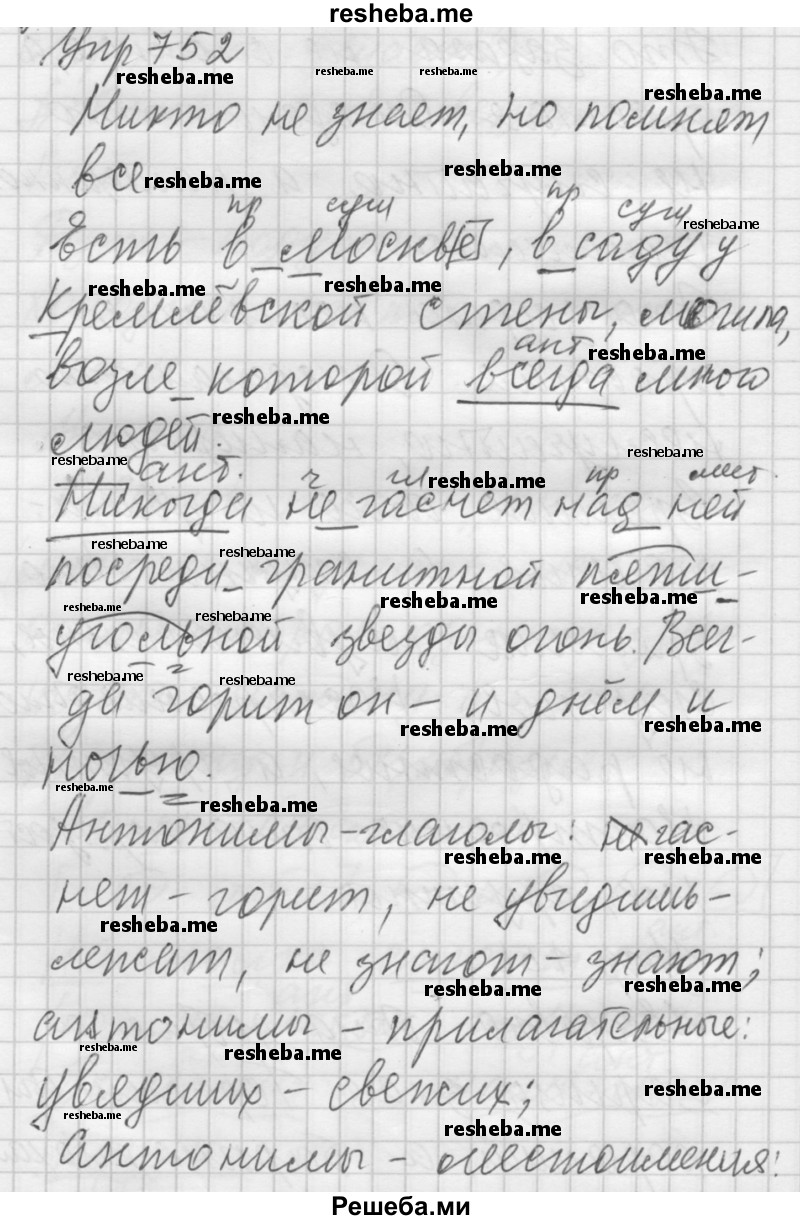 resheba.me
Упр 752
resheba.me resheba.me resheba.me
resheba.me
Никто не знает, но помнят
resheba.me resheba.me
все
пр сущ пр сущ
resheba.me
Есть в Москве, в саду у
resheba.me resheba.me
Кремлёвской стены, могила,
ант resheba.me
возле которой всегда много
resheba.me
людей.
resheba.me resheba.me
ант. ч гл resheba.me пр мест.
Никогда не гаснет над ней
resheba.me resheba.me
посреди гранитной пяти-
resheba.me resheba.me resheba.me resheba.me
угольной звезды огонь. Всег-
resheba.me resheba.me
да горит он – и днём и
resheba.me resheba.me
ночью.
resheba.me resheba.me
Антонимы – глаголы: не гас-
resheba.me resheba.me
нет – горит, не увидишь –
resheba.me
лежат, не знают – знают;
resheba.me resheba.me
антонимы – прилагательные:
resheba.me resheba.me
увядших – свежих;
resheba.me resheba.me
resheba.me
антонимы – местоимения:
Решеба.ми